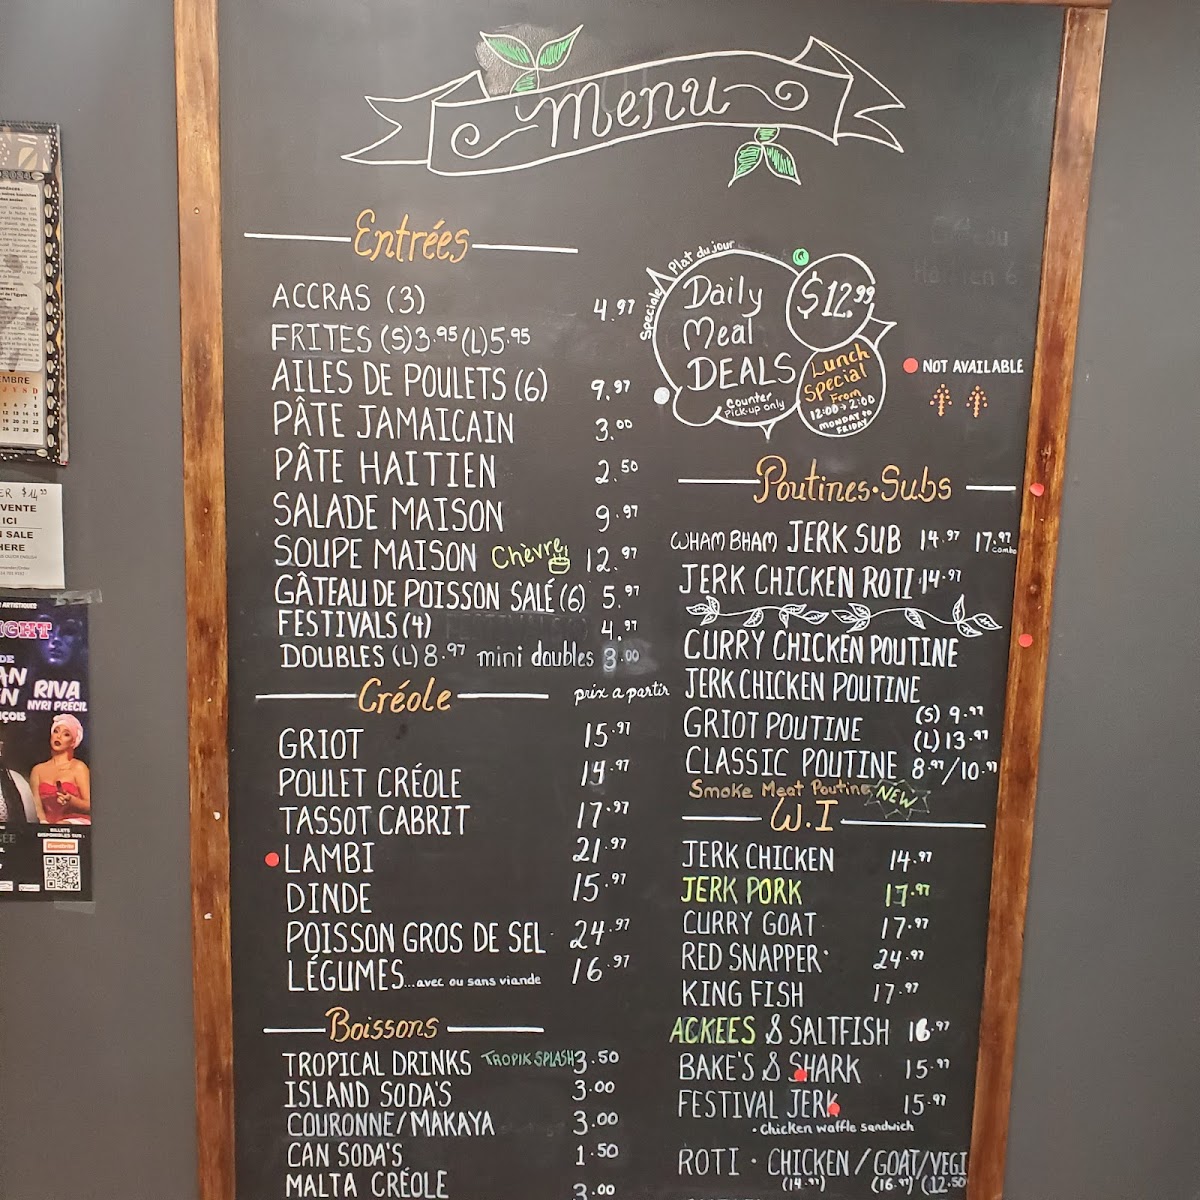 Menu
Entrées
ACCRAS (3) 4.97
FRITES (S) 3.95 (L) 5.95
AILES DE POULETS (6) 9.97
PÂTE JAMAICAIN 3.00
PÂTE HAITIEN 2.50
SALADE MAISON 9.97
SOUPE MAISON Chèvre 12.97
GÂTEAU DE POISSON SALÉ (6) 5.97
FESTIVALS (4) 4.97
DOUBLES (L) 8.97 mini doubles 3.00
Créole prix a partir
GRIOT 15.97
POULET CRÉOLE 14.97
TASSOT CABRIT 17.97
LAMBI 21.97
DINDE 15.97
POISSON GROS DE SEL 24.97
LÉGUMES...avec ou sans viande 16.97
Boissons
TROPICAL DRINKS TROPIK SPLASH 3.50
ISLAND SODA'S 3.00
COURONNE/MAKAYA 3.00
CAN SODA'S 1.50
MALTA CRÉOLE 3.00
Speciale Plat du jour
Daily
Meal
DEALS
Counter
Pick-up only
$12.99
Lunch
Special
From
12:00→2:00
MONDAY to
FRIDAY
NOT AVAILABLE
Poutines·Subs
WHAM BHAM JERK SUB 14.97 17.97 combo
JERK CHICKEN ROTI 14.97
CURRY CHICKEN POUTINE
JERK CHICKEN POUTINE
(S) 9.97
GRIOT POUTINE (L) 13.97
CLASSIC POUTINE 8.97/10.97
Smoke Meat Poutine NEW
W.I
JERK CHICKEN 14.97
JERK PORK 17.97
CURRY GOAT 17.97
RED SNAPPER 24.97
KING FISH 17.97
ACKEES & SALTFISH 16.97
BAKE'S & SHARK 15.97
FESTIVAL JERK 15.97
·chicken waffle sandwich
ROTI · CHICKEN / GOAT/VEGI
(14.97) (16.97) (12.50
VENTE
ICI
SALE
HERE
RIVA
NYRI PRÉCIL
BILLETS
DISPONIBLES SUR :